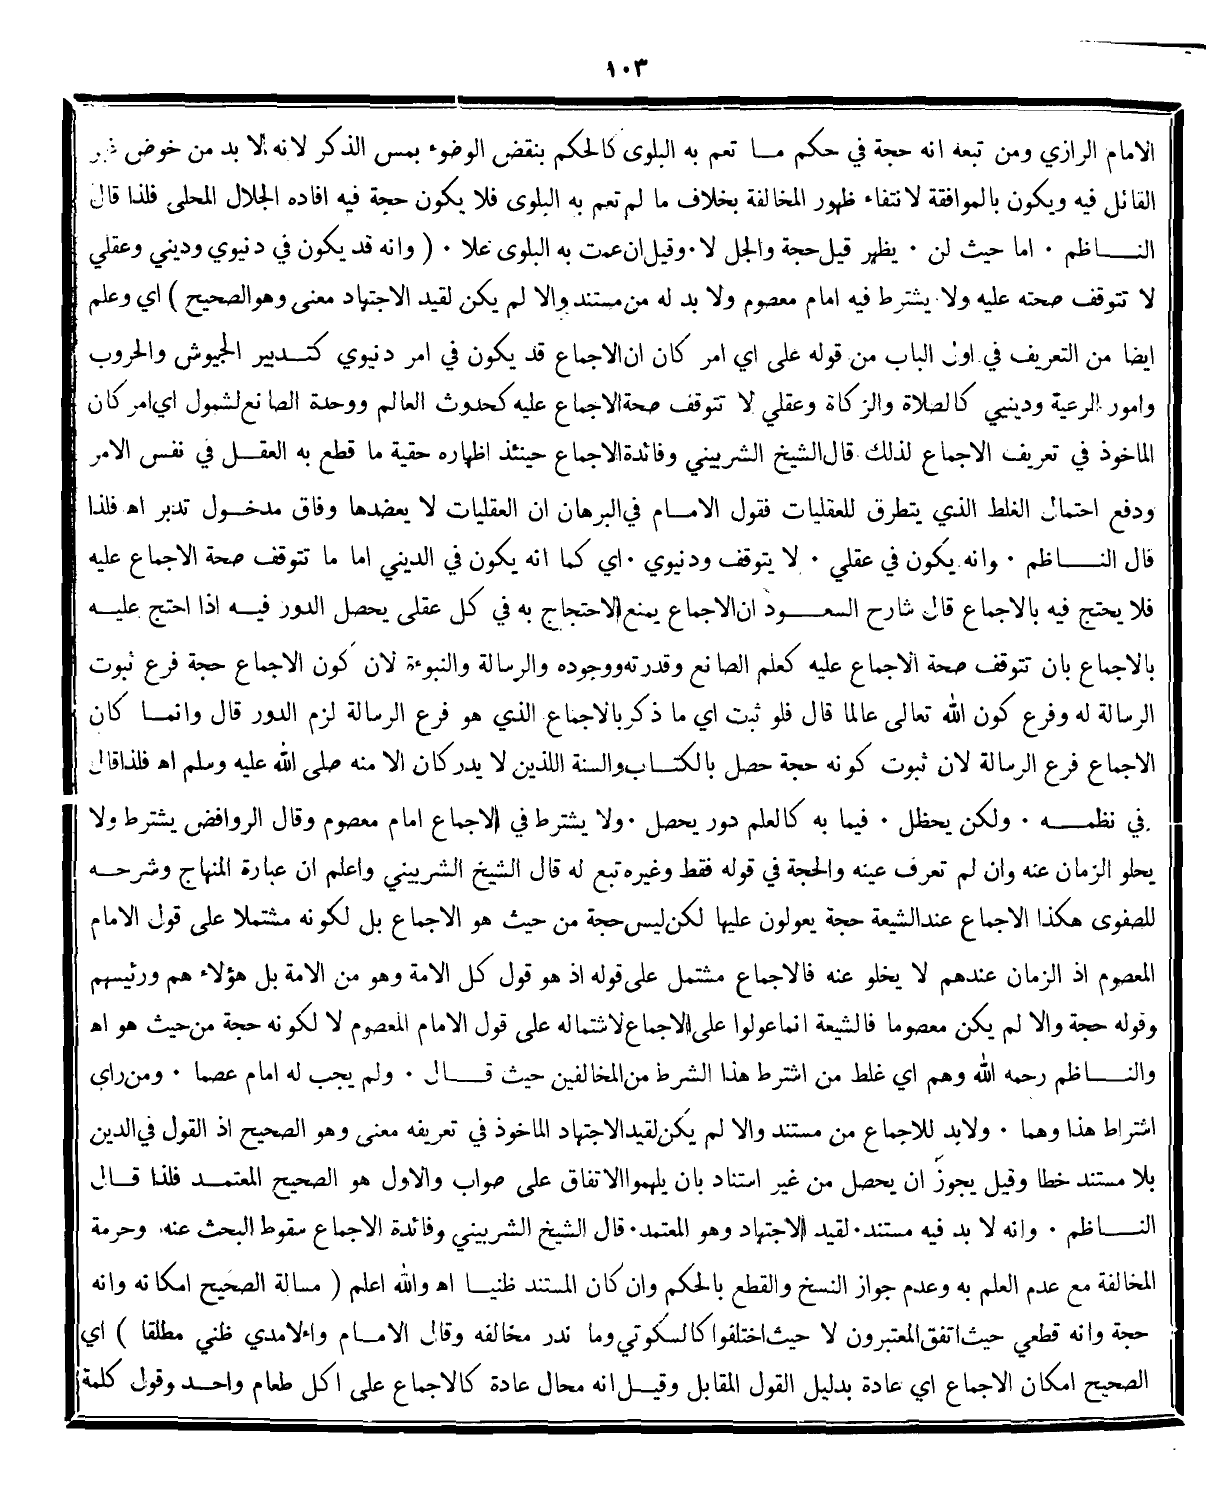 ١٠٣
الامام الرازي ومن تبعه انه حجة في حكم ما تعم به البلوى كالحكم بنقض الوضوء بمس الذكر لانه لا بد من خوض غير
القائل فيه ويكون بالموافقة لانتفاء ظهور المخالفة بخلاف ما لم تعم به البلوى فلا يكون حجة فيه افاده الجلال المحلى فلذا قال
الناظم ٠ اما حيث لن ٠ يظهر قيل حجة والجل لا ٠ وقيل ان عمت به البلوى علا ٠ ( وانه قد يكون في دنيوي وديني وعقلي
لا تتوقف صحته عليه ولا يشترط فيه امام معصوم ولا بد له من مستند والا لم يكن لقيد الاجتهاد معنى وهو الصحيح ) اي وعلم
ايضا من التعريف في اول الباب من قوله على اي امر كان ان الاجماع قد يكون في امر دنيوي كتدبير الجيوش والحروب
وامور الرعية وديني كالصلاة والزكاة وعقلي لا تتوقف صحة الاجماع عليه كحدوث العالم ووحدة الصانع لشمول اي امر كان
الماخوذ في تعريف الاجماع لذلك قال الشيخ الشربيني وفائدة الاجماع حينئذ اظهاره حقية ما قطع به العقل في نفس الامر
ودفع احتمال الغلط الذي يتطرق للعقليات فقول الامام في البرهان ان العقليات لا يعضدها وفاق مدخول تدبر اه فلذا
قال الناظم ٠ وانه يكون في عقلي ٠ لا يتوقف ودنيوي ٠ اي كما انه يكون في الديني اما ما تتوقف صحة الاجماع عليه
فلا يحتج فيه بالاجماع قال شارح السعود ان الاجماع يمنع الاحتجاج به في كل عقلى يحصل الدور فيه اذا احتج عليه
بالاجماع بان تتوقف صحة الاجماع عليه كعلم الصانع وقدرته ووجوده والرسالة والنبوءة لان كون الاجماع حجة فرع ثبوت
الرسالة له وفرع كون الله تعالى عالما قال فلو ثبت اي ما ذكر بالاجماع الذي هو فرع الرسالة لزم الدور قال وانما كان
الاجماع فرع الرسالة لان ثبوت كونه حجة حصل بالكتاب والسنة اللذين لا يدركان الا منه صلى الله عليه وسلم اه فلذا قال
في نظمه ٠ ولكن يحظل ٠ فيما به كالعلم دور يحصل ٠ ولا يشترط في الاجماع امام معصوم وقال الروافض يشترط ولا
يحلو الزمان عنه وان لم تعرف عينه والحجة في قوله فقط وغيره تبع له قال الشيخ الشربيني واعلم ان عبارة المنهاج وشرحه
للصفوى هكذا الاجماع عند الشيعة حجة يعولون عليها لكن ليس حجة من حيث هو الاجماع بل لكونه مشتملا على قول الامام
المعصوم اذ الزمان عندهم لا يخلو عنه فالاجماع مشتمل على قوله اذ هو قول كل الامة وهو من الامة بل هؤلاء هم ورئيسهم
وقوله حجة والا لم يكن معصوما فالشيعة انما عولوا على الاجماع لاشتماله على قول الامام المعصوم لا لكونه حجة من حيث هو اه
والناظم رحمه الله وهم اي غلط من اشترط هذا الشرط من المخالفين حيث قال ٠ ولم يجب له امام عصما ٠ ومن راي
اشتراط هذا وهما ٠ ولابد للاجماع من مستند والا لم يكن لقيد الاجتهاد الماخوذ في تعريفه معنى وهو الصحيح اذ القول في الدين
بلا مستند خطا وقيل يجوز ان يحصل من غير استناد بان يلهموا الاتفاق على صواب والاول هو الصحيح المعتمد فلذا قال
الناظم ٠ وانه لا بد فيه مستند ٠ لقيد الاجتهاد وهو المعتمد ٠ قال الشيخ الشربيني وفائدة الاجماع سقوط البحث عنه وحرمة
المخالفة مع عدم العلم به وعدم جواز النسخ والقطع بالحكم وان كان المستند ظنيا اه والله اعلم ( مسالة الصحيح امكانه وانه
حجة وانه قطعي حيث اتفق المعتبرون لا حيث اختلفوا كالسكوتي وما ندر مخالفه وقال الامام والامدي ظني مطلقا ) اي
الصحيح امكان الاجماع اي عادة بدليل القول المقابل وقيل انه محال عادة كالاجماع على اكل طعام واحد وقول كلمة